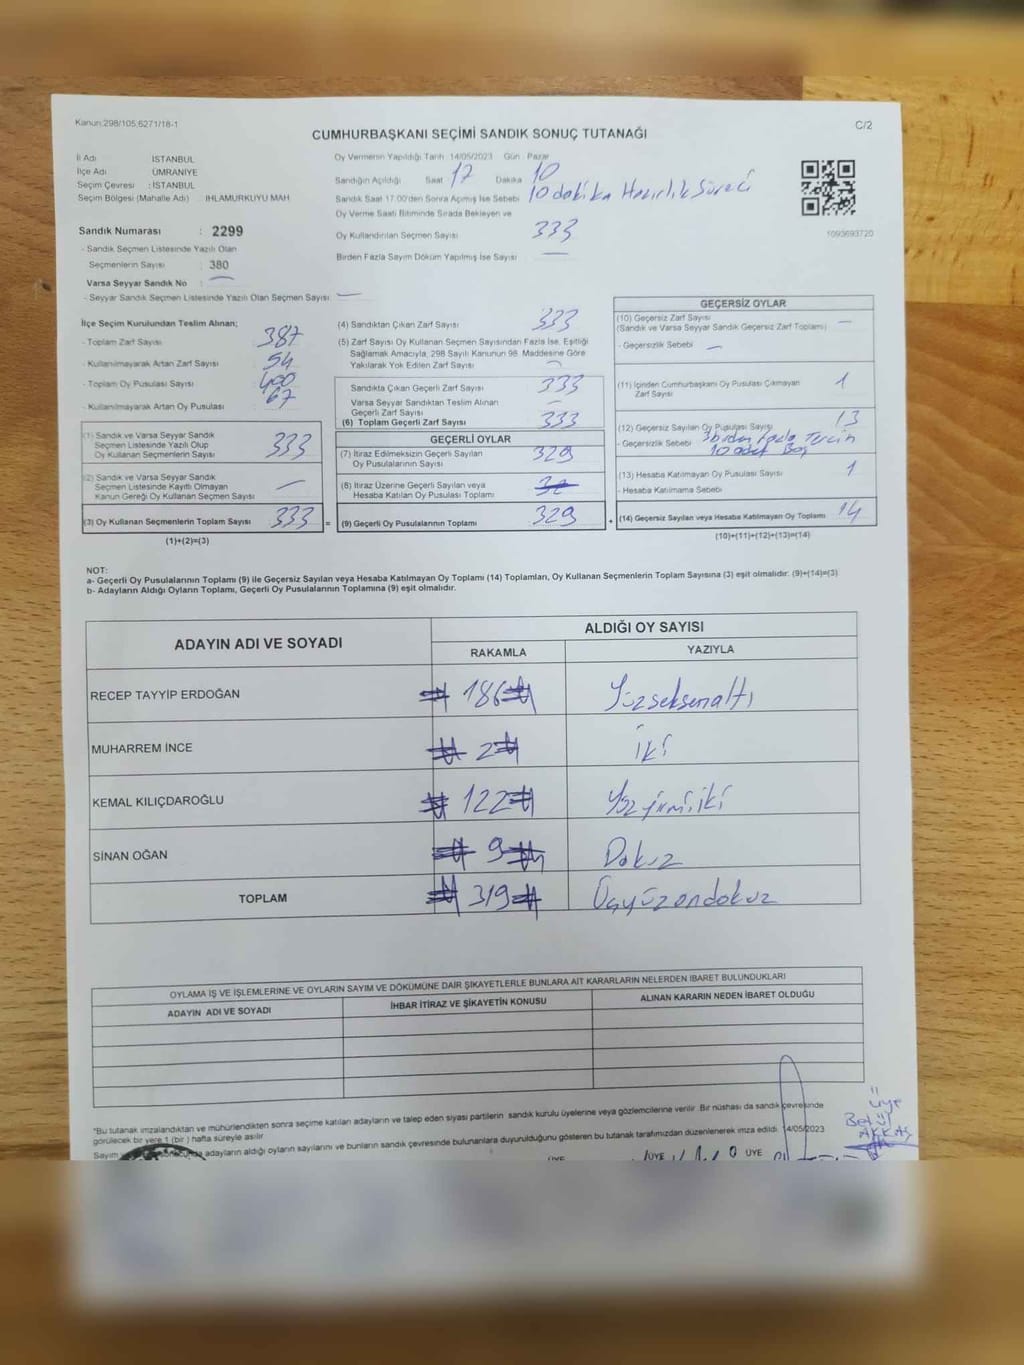 Kanun:298/105;6271/18-1
C/2
CUMHURBAŞKANI SEÇİMİ SANDIK SONUÇ TUTANAĞI
İl Adı İSTANBUL
İlçe Adı ÜMRANİYE
Seçim Çevresi : İSTANBUL
Seçim Bölgesi (Mahalle Adı) IHLAMURKUYU MAH.
Oy Vermenin Yapıldığı Tarih :14/05/2023 Gün : Pazar
Sandığın Açıldığı Saat 17 Dakika 10
Sandık Saat 17:00'den Sonra Açılmış İse Sebebi 10 dakika Hazırlık Süreci
Oy Verme Saati Bitiminde Sırada Bekleyen ve
Oy Kullandırılan Seçmen Sayısı 333
Birden Fazla Sayım Döküm Yapılmış İse Sayısı —
1093693720
Sandık Numarası : 2299
- Sandık Seçmen Listesinde Yazılı Olan
Seçmenlerin Sayısı : 380
Varsa Seyyar Sandık No :
- Seyyar Sandık Seçmen Listesinde Yazılı Olan Seçmen Sayısı: —
İlçe Seçim Kurulundan Teslim Alınan;
- Toplam Zarf Sayısı 387
- Kullanılmayarak Artan Zarf Sayısı 54
- Toplam Oy Pusulası Sayısı 400
- Kullanılmayarak Artan Oy Pusulası 67
(1) Sandık ve Varsa Seyyar Sandık
Seçmen Listesinde Yazılı Olup
Oy Kullanan Seçmenlerin Sayısı 333
(2) Sandık ve Varsa Seyyar Sandık
Seçmen Listesinde Kayıtlı Olmayan
Kanun Gereği Oy Kullanan Seçmen Sayısı —
(3) Oy Kullanan Seçmenlerin Toplam Sayısı 333 =
(1)+(2)=(3)
(4) Sandıktan Çıkan Zarf Sayısı 333
(5) Zarf Sayısı Oy Kullanan Seçmen Sayısından Fazla İse, Eşitliği
Sağlamak Amacıyla, 298 Sayılı Kanunun 98. Maddesine Göre
Yakılarak Yok Edilen Zarf Sayısı —
Sandıkta Çıkan Geçerli Zarf Sayısı 333
Varsa Seyyar Sandıktan Teslim Alınan
Geçerli Zarf Sayısı —
(6) Toplam Geçerli Zarf Sayısı 333
GEÇERLİ OYLAR
(7) İtiraz Edilmeksizin Geçerli Sayılan
Oy Pusulalarının Sayısı 329
(8) İtiraz Üzerine Geçerli Sayılan veya
Hesaba Katılan Oy Pusulası Toplamı
(9) Geçerli Oy Pusulalarının Toplamı 329 +
GEÇERSİZ OYLAR
(10) Geçersiz Zarf Sayısı
(Sandık ve Varsa Seyyar Sandık Geçersiz Zarf Toplamı) —
- Geçersizlik Sebebi —
(11) İçinden Cumhurbaşkanı Oy Pusulası Çıkmayan
Zarf Sayısı 1
(12) Geçersiz Sayılan Oy Pusulası Sayısı 13
- Geçersizlik Sebebi 3 birden fazla Tercih
10 adet Boş
(13) Hesaba Katılmayan Oy Pusulası Sayısı 1
- Hesaba Katılmama Sebebi
(14) Geçersiz Sayılan veya Hesaba Katılmayan Oy Toplamı 14
(10)+(11)+(12)+(13)=(14)
NOT:
a- Geçerli Oy Pusulalarının Toplamı (9) ile Geçersiz Sayılan veya Hesaba Katılmayan Oy Toplamı (14) Toplamları, Oy Kullanan Seçmenlerin Toplam Sayısına (3) eşit olmalıdır. (9)+(14)=(3)
b- Adayların Aldığı Oyların Toplamı, Geçerli Oy Pusulalarının Toplamına (9) eşit olmalıdır.
ADAYIN ADI VE SOYADI
ALDIĞI OY SAYISI
RAKAMLA YAZIYLA
RECEP TAYYİP ERDOĞAN 186 Yüzseksenaltı
MUHARREM İNCE 2 İki
KEMAL KILIÇDAROĞLU 122 Yüzyirmiiki
SİNAN OĞAN 9 Dokuz
TOPLAM 319 Üçyüzondokuz
OYLAMA İŞ VE İŞLEMLERİNE VE OYLARIN SAYIM VE DÖKÜMÜNE DAİR ŞİKAYETLERLE BUNLARA AİT KARARLARIN NELERDEN İBARET BULUNDUKLARI
ADAYIN ADI VE SOYADI İHBAR İTİRAZ VE ŞİKAYETİN KONUSU ALINAN KARARIN NEDEN İBARET OLDUĞU
*Bu tutanak imzalandıktan ve mühürlendikten sonra seçime katılan adayların ve talep eden siyasi partilerin sandık kurulu üyelerine veya gözlemcilerine verilir. Bir nüshası da sandık çevresinde
görülecek bir yere 1 (bir) hafta süreyle asılır.
Sayım adayların aldığı oyların sayılarını ve bunların sandık çevresinde bulunanlara duyurulduğunu gösteren bu tutanak tarafımızdan düzenlenerek imza edildi. 14/05/2023
ÜYE ÜYE ÜYE